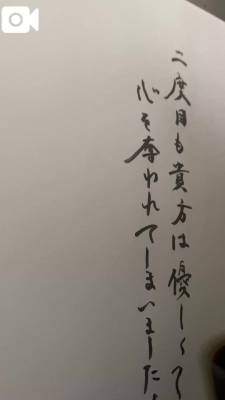 二度目も貴方は優しくて
心を奪われてしまいました